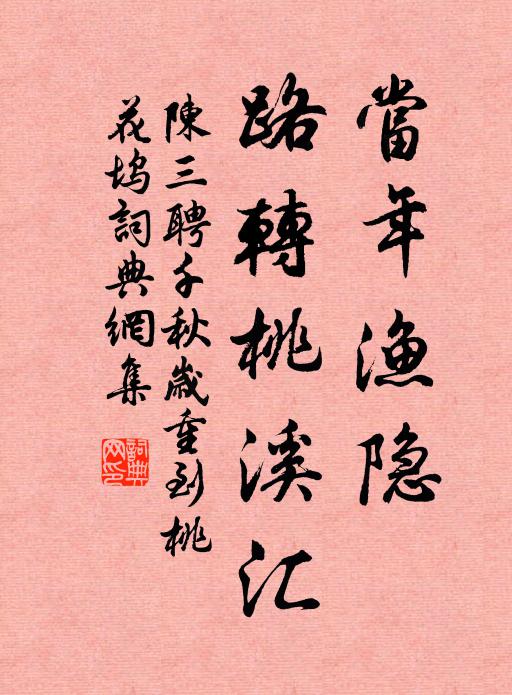 當年漁隐
路轉桃溪汇
陳三聘千秋歲重到桃
花坞詞典網集
詞典網印